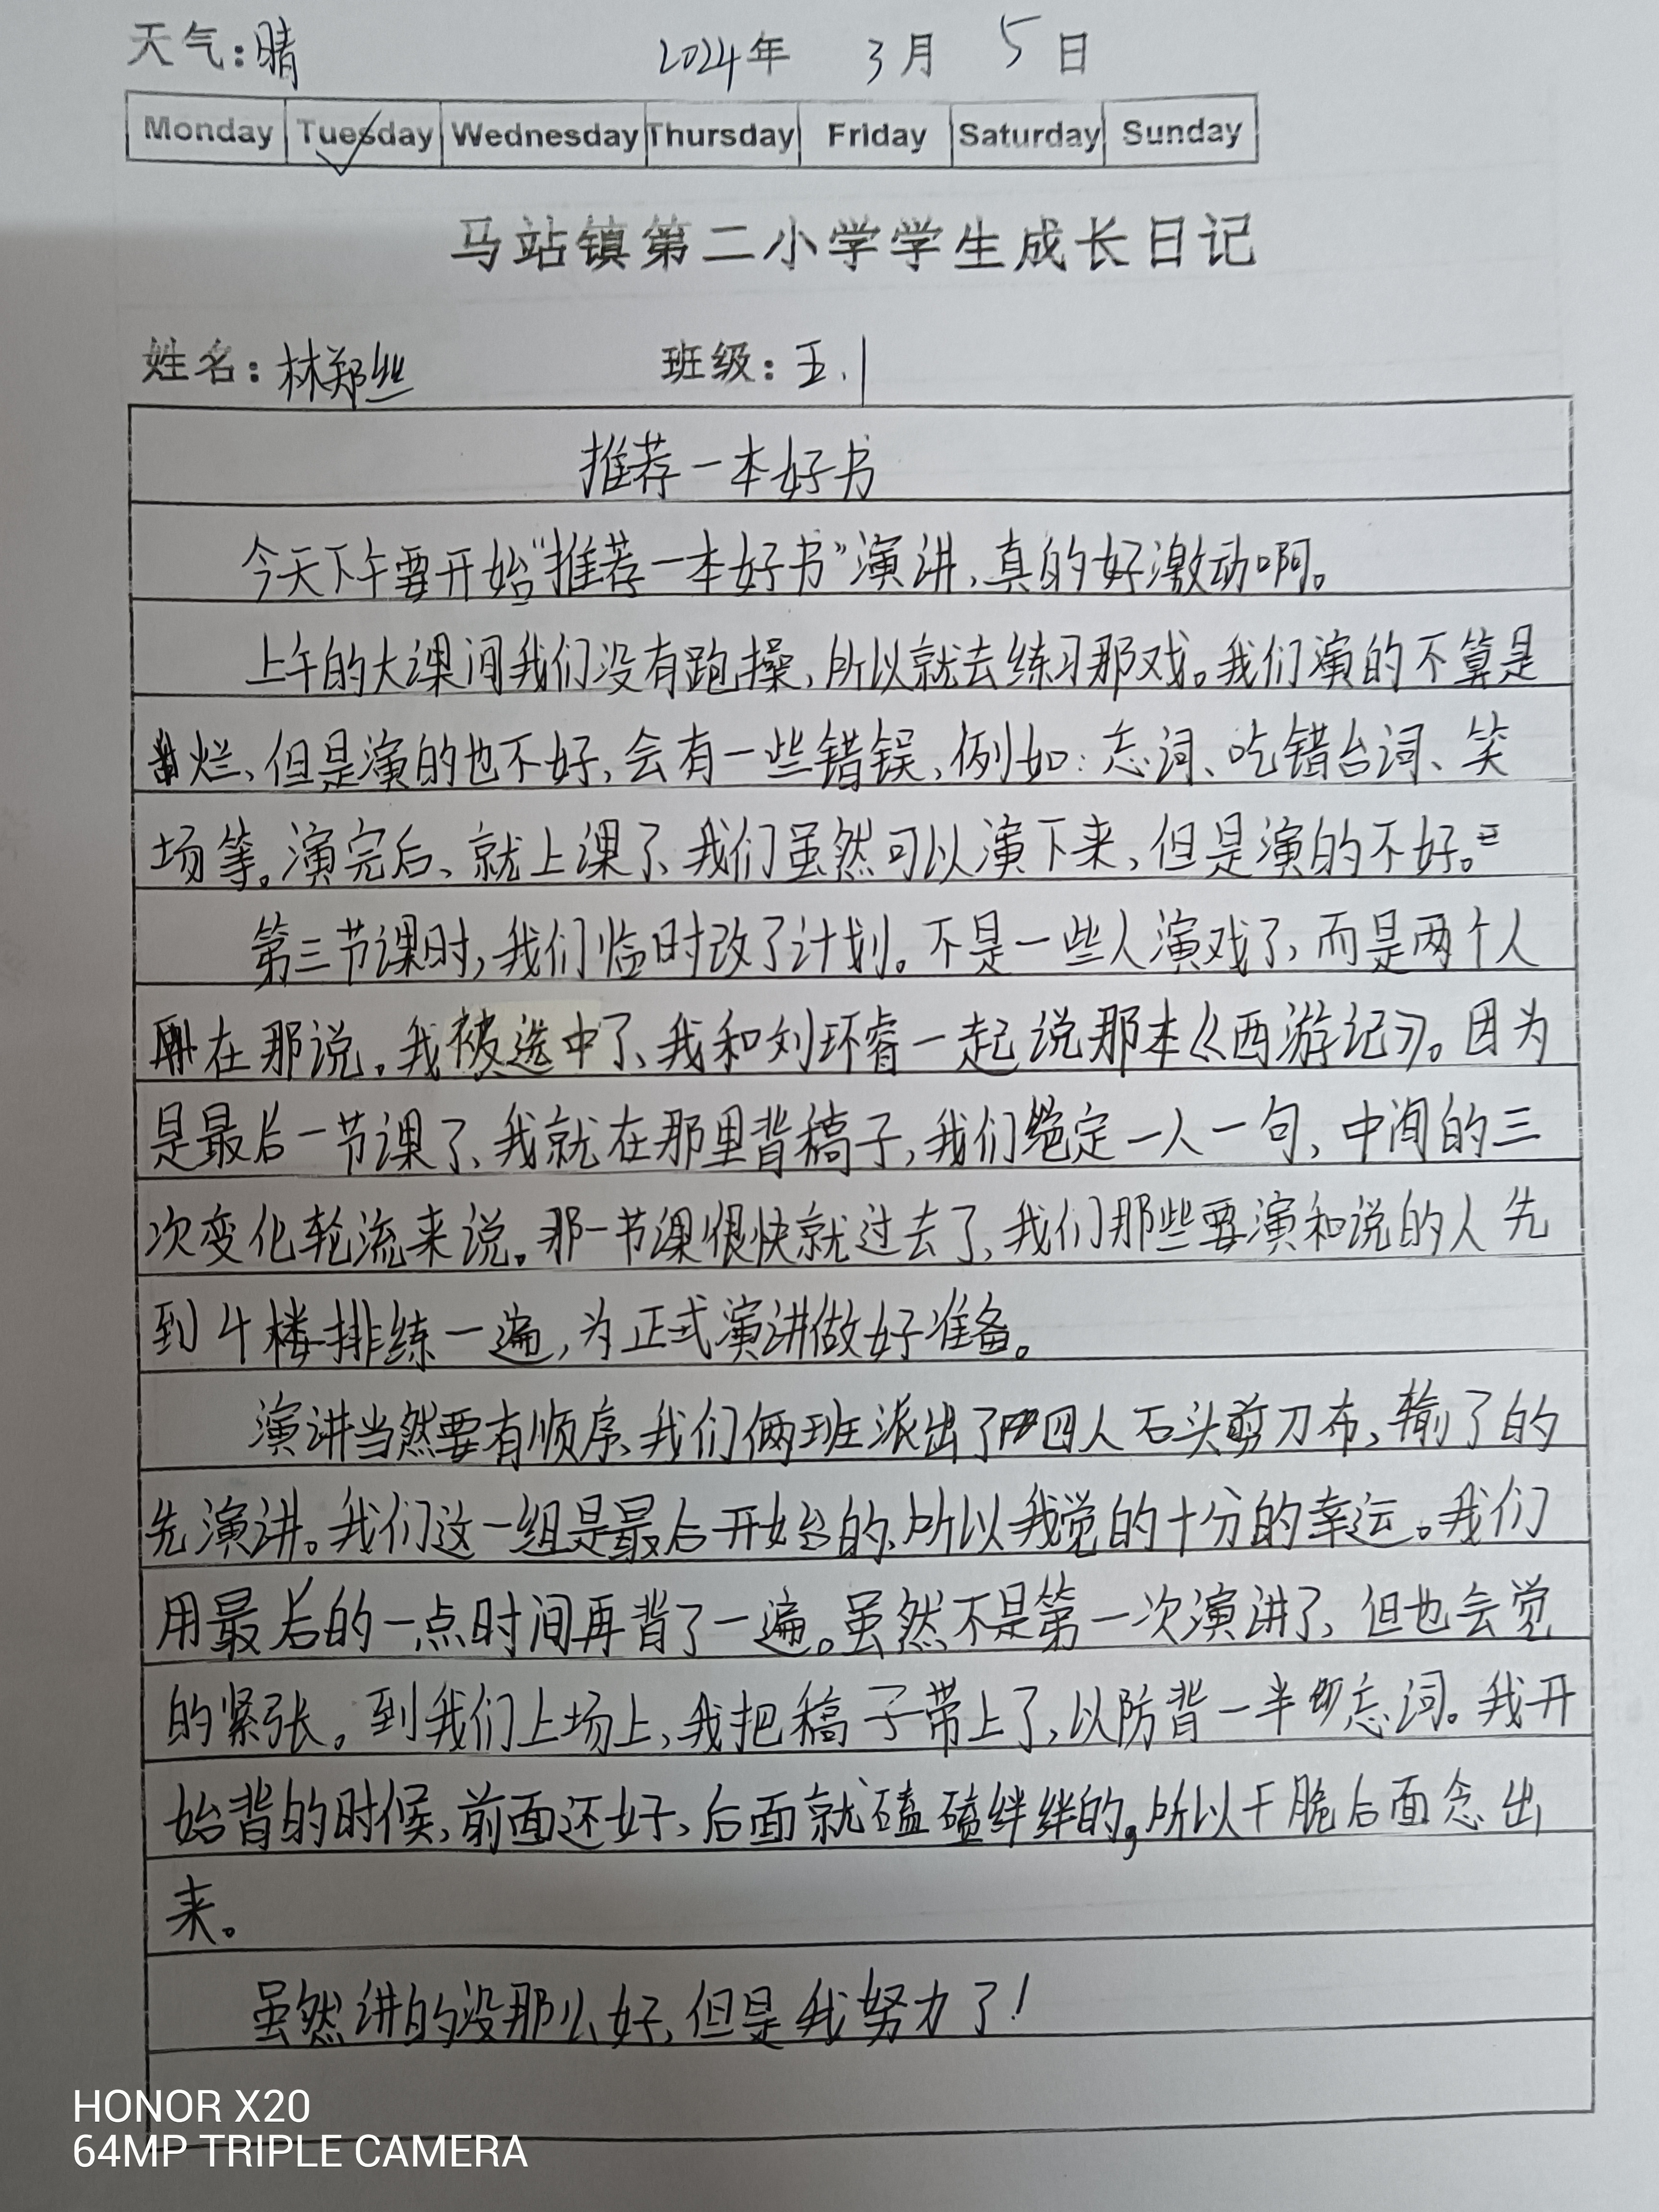 天气:晴 2024年 3月 5日
Monday Tuesday Wednesday Thursday Friday Saturday Sunday
马站镇第二小学学生成长日记
姓名:林郑丝 班级:五.1
推荐一本好书
今天下午要开始“推荐一本好书”演讲,真的好激动啊。
上午的大课间我们没有跑操,所以就去练习那戏。我们演的不算是
烂,但是演的也不好,会有一些错误,例如:忘词、吃错台词、笑
场等。演完后、就上课了、我们虽然可以演下来,但是演的不好。
第三节课时,我们临时改了计划。不是一些人演戏了,而是两个人
在那说。我被选中了、我和刘环睿一起说那本《西游记》。因为
是最后一节课了、我就在那里背稿子,我们定一人一句,中间的三
次变化轮流来说。那一节课很快就过去了、我们那些要演和说的人先
到4楼排练一遍,为正式演讲做好准备。
演讲当然要有顺序、我们俩班派出了四人石头剪刀布,输了的
先演讲。我们这一组是最后开始的、所以我觉的十分的幸运。我们
用最后的一点时间再背了一遍。虽然不是第一次演讲了、但也会觉
的紧张。到我们上场上,我把稿子带上了,以防背一半忘词。我开
始背的时候,前面还好、后面就磕磕绊绊的,所以干脆后面念出
来。
虽然讲的没那么好,但是我努力了!
HONOR X20
64MP TRIPLE CAMERA